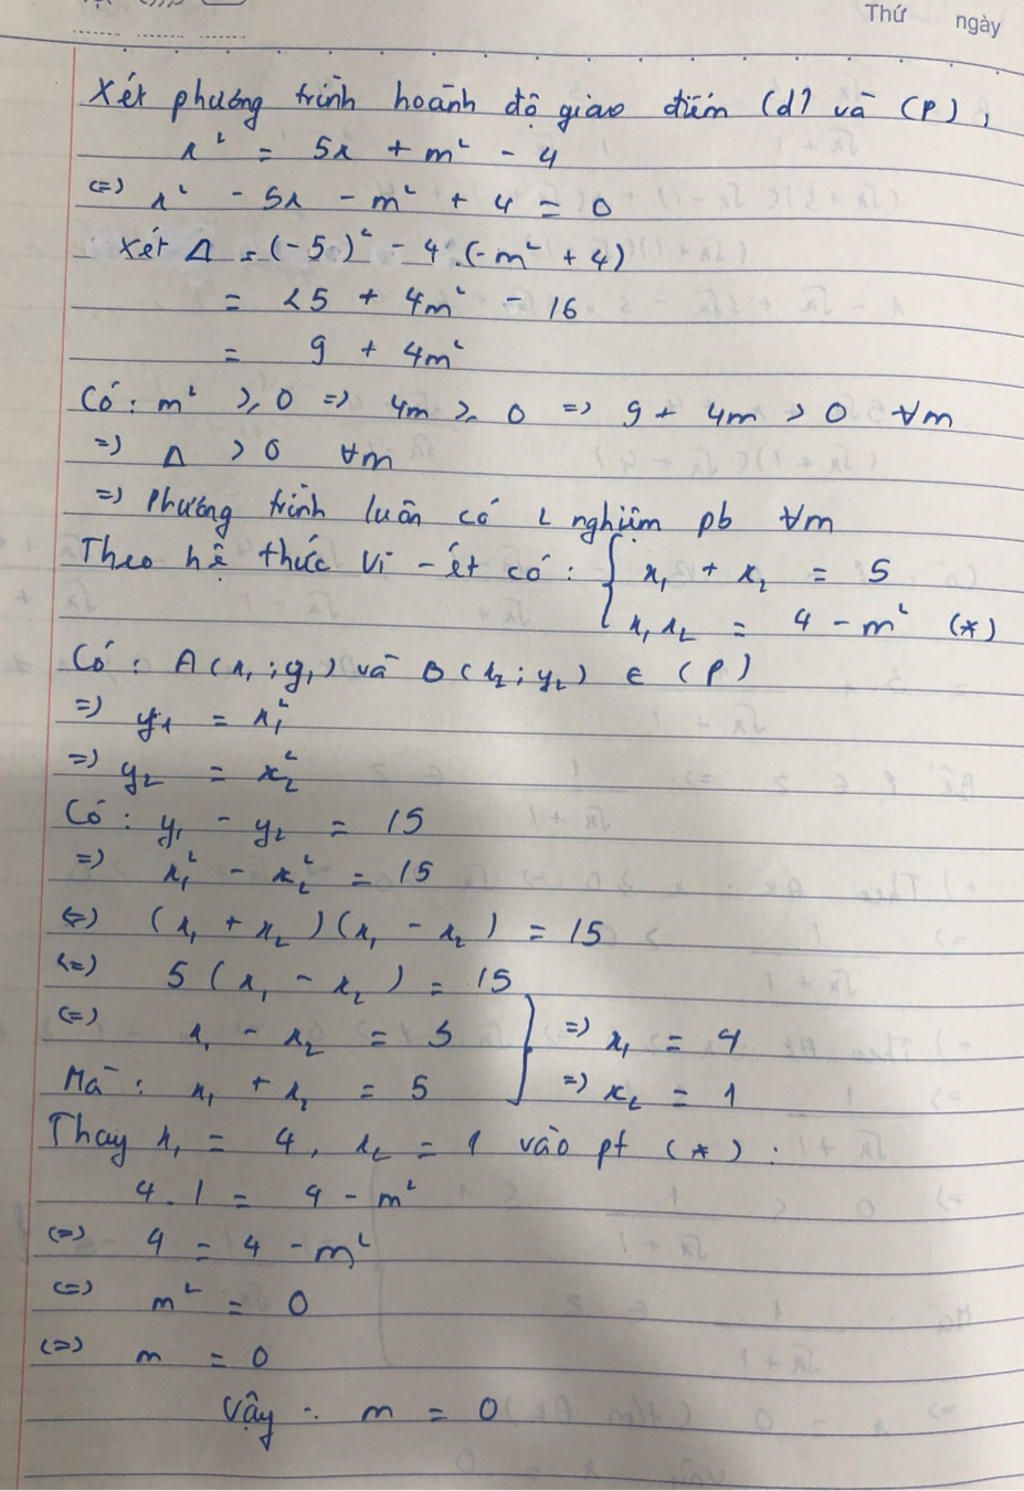 Thứ ngày
Xét phương trình hoành độ giao điểm (d) và (P),
x² = 5x + m² - 4
(=) x² - 5x - m² + 4 = 0
Xét Δ = (-5)² - 4.(-m² + 4)
= 25 + 4m² - 16
= 9 + 4m²
Có: m² ≥ 0 => 4m ≥ 0 => 9 + 4m > 0 ∀m
=> Δ > 0 ∀m
=> Phương trình luôn có 2 nghiệm pb ∀m
Theo hệ thức Vi-ét có: { x₁ + x₂ = 5
x₁x₂ = 4 - m² (*)
Có: A(x₁;y₁) và B(x₂;y₂) ∈ (P)
=> y₁ = x₁²
=> y₂ = x₂²
Có: y₁ - y₂ = 15
=> x₁² - x₂² = 15
(=) (x₁ + x₂)(x₁ - x₂) = 15
(=) 5(x₁ - x₂) = 15
(=) x₁ - x₂ = 3 } => x₁ = 4
Mà: x₁ + x₂ = 5 => x₂ = 1
Thay x₁ = 4, x₂ = 1 vào pt (*):
4.1 = 4 - m²
(=) 4 = 4 - m²
(=) m² = 0
(=) m = 0
Vậy: m = 0